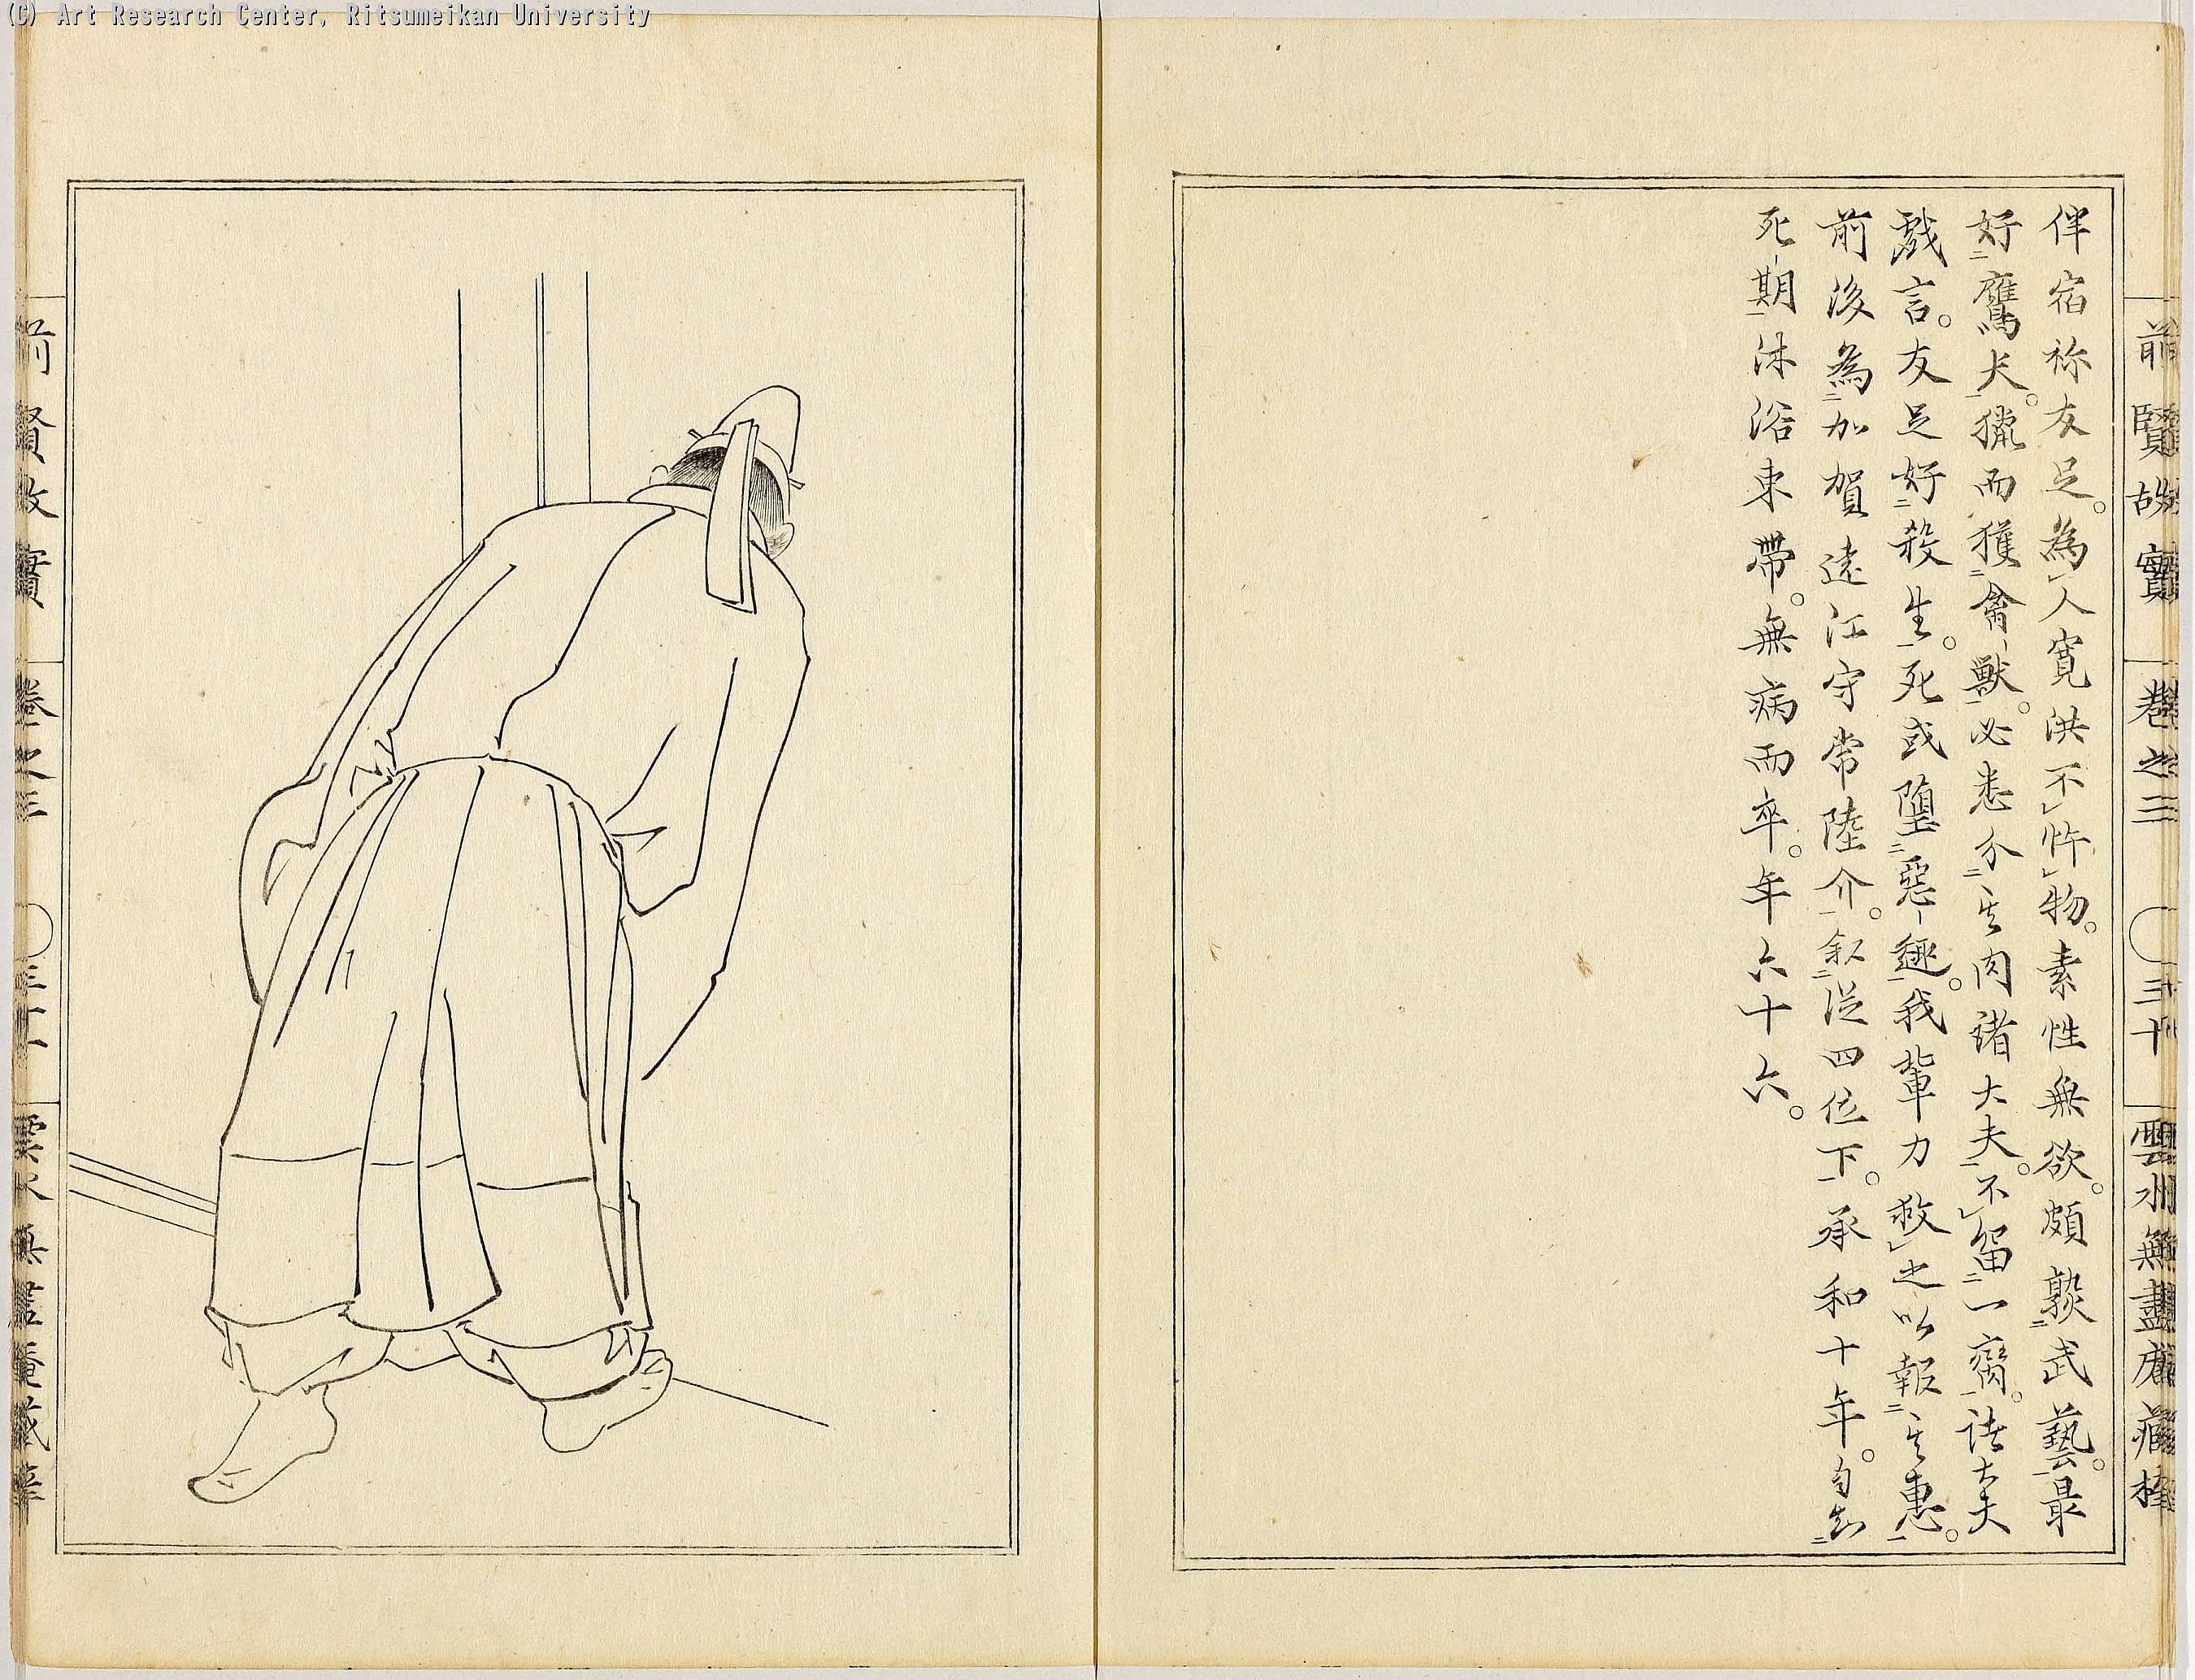 (C) Art Research Center, Ritsumeikan University
前賢故實 卷之三 〇三十 雲水無盡庵藏梓
伴宿祢友足。為人寛洪不忤物。素性無欲。頗敦武藝。最
好鷹犬。獵而獲禽獸。必悉分其肉諸大夫。不留一臠。諸大夫
戲言。友足好殺生。死或墮惡趣。我輩力救之以報其惠。
前後為加賀遠江守常陸介。叙從四位下。承和十年。自知
死期沐浴束帶。無病而卒。年六十六。
前賢故實 卷之三
雲水無盡庵藏梓